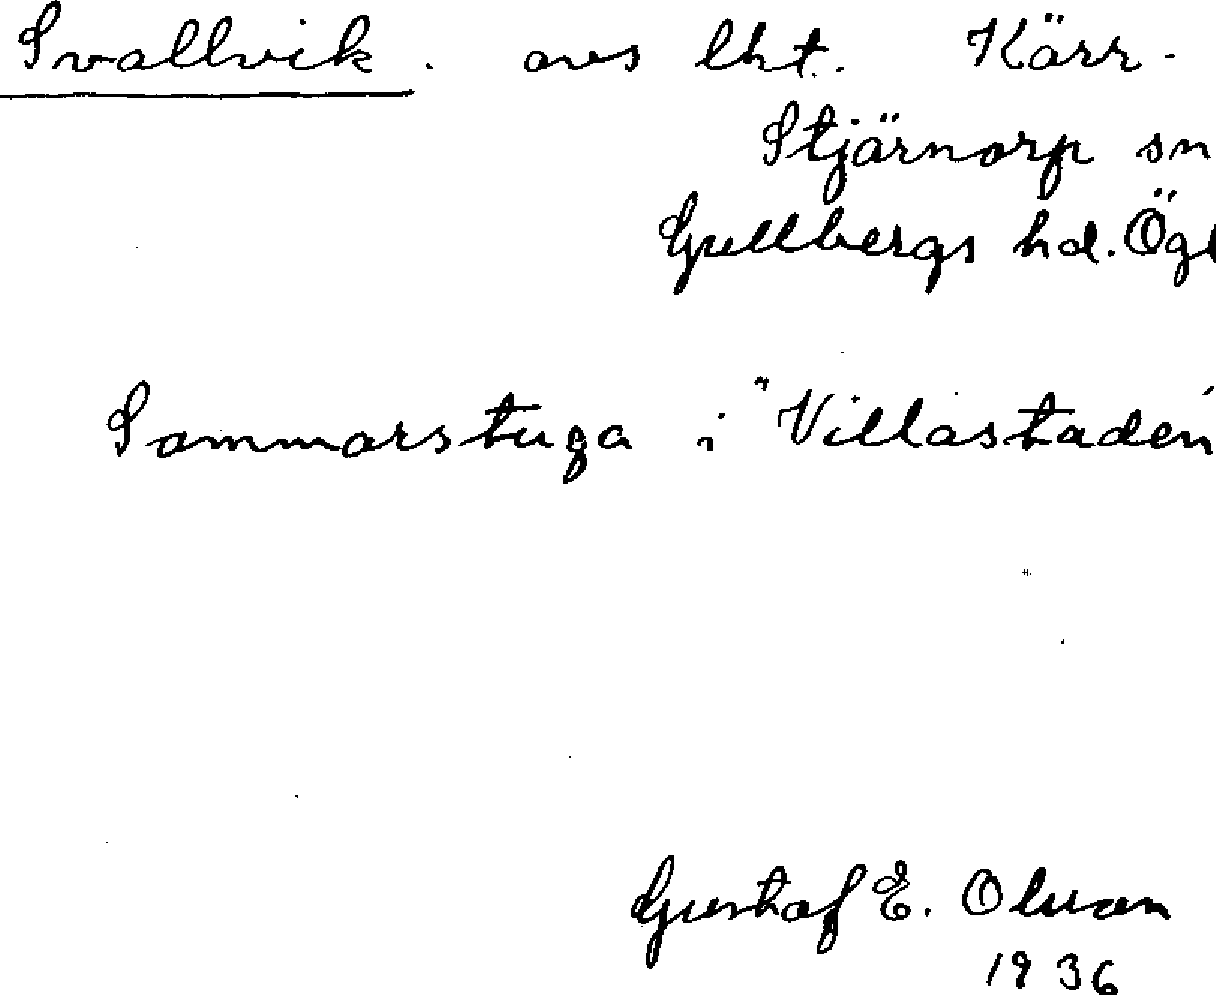 Svallvik. avs lht. Kärr-
Stjärnorp sn
Gullbergs hd. Ögl
Sommarstuga i "Villastaden"
Gustaf E. Olsson
1936